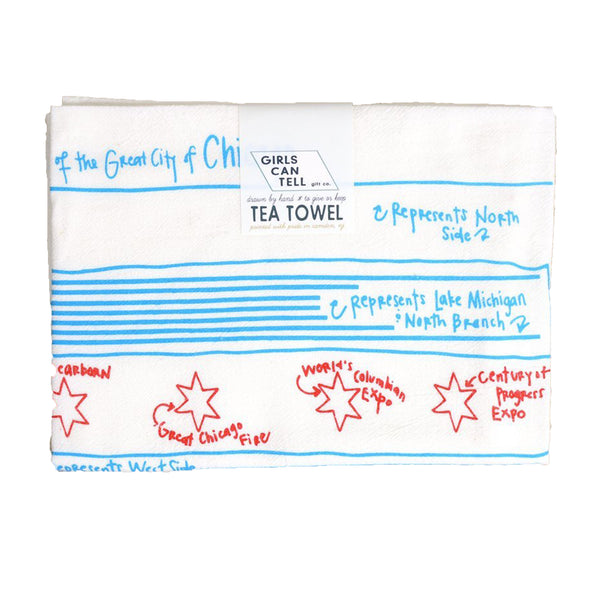 of the Great City of Chi
GIRLS
CAN
TELL
gift co.
drawn by hand to give or keep
TEA TOWEL
printed with pride in camden, nj
Represents North
Side
Represents Lake Michigan
& North Branch
earborn
Great Chicago
Fire
World's
Columbian
Expo
Century of
Progress
Expo
epresents West Side